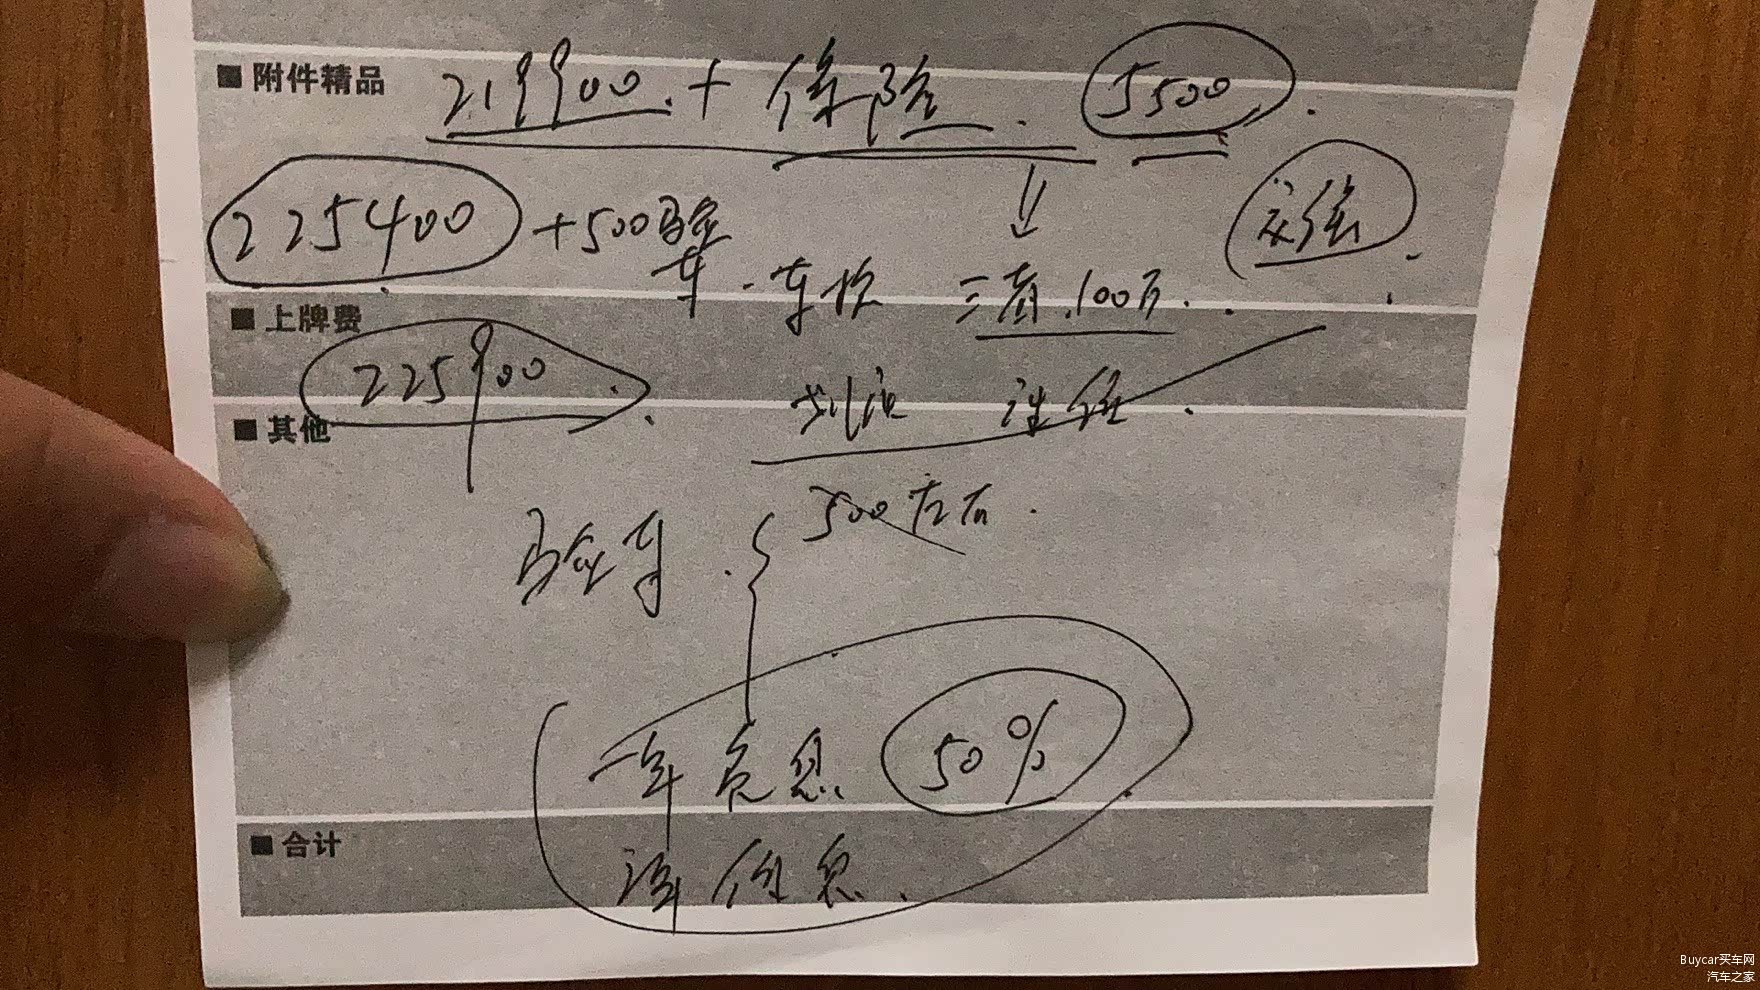 ■ 附件精品 219900 + 保险 5500
225400 +500验车
车损 三者 100万 交强
■ 上牌费
225900
划痕
■ 其他
500左右
验车
一年免息 50%
两年低息
■ 合计
Buycar买车网
汽车之家